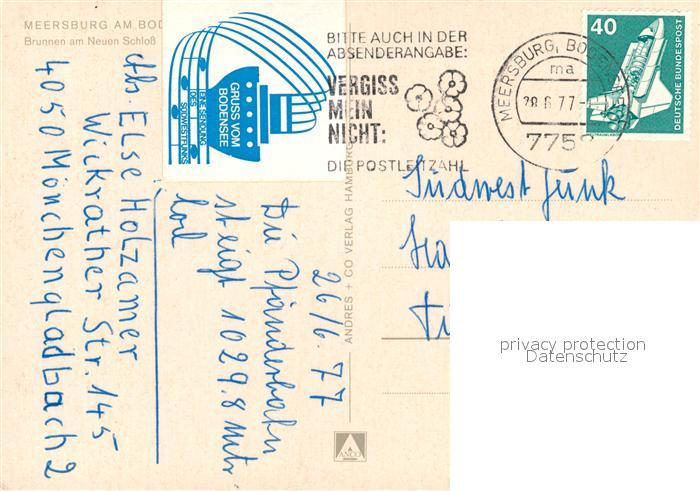 MEERSBURG AM BOD
Brunnen am Neuen Schloß
GRUSS VOM
BODENSEE
EINE SENDUNG
DES
SÜDWESTFUNKS
BITTE AUCH IN DER
ABSENDERANGABE:
VERGISS
MEIN
NICHT:
DIE POSTLEITZAHL
MEERSBURG, BODENSEE
ma
28.6.77-
775
40
DEUTSCHE BUNDESPOST
Abs. Else Holzamer
Wickrather Str. 145
4050 Mönchengladbach 2
26/6. 77
Die Pfänderbahn
steigt 1029.8 mtr.
ANDRES + CO VERLAG HAMBURG
ANCO
Südwest Funk
privacy protection
Datenschutz